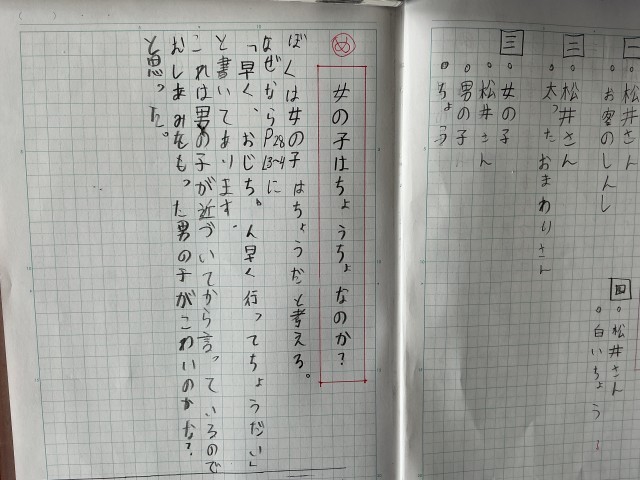 。松井さん
。お客のしんし
三
。松井さん
。太ったおまわりさん
三
。女の子
。松井さん
。男の子
。ちょう
四
。松井さん
。白いちょう
め
女の子はちょうちょなのか?
ぼくは女の子はちょうだと考える。
なぜから P28 L3~4に
「早く、おじちゃん早く行ってちょうだい」
と書いてあります。
これは男の子が近づいてから言っているので
おしあみをもった男の子がこわいのかな?
と思った。